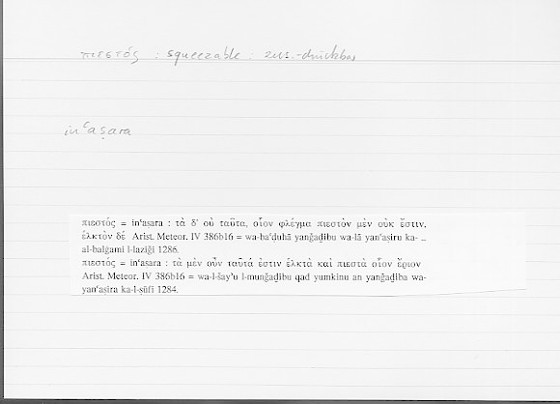 πιεστός : squeezable : zus.-drückbar
inʿaṣara
πιεστός = inʿaṣara : τὰ δ' οὐ ταῦτα, οἷον φλέγμα πιεστὸν μὲν οὐκ ἔστιν,
ἑλκτὸν δέ Arist. Meteor. IV 386b16 = wa-baʿḍuhā yanǧaḏibu wa-lā yanʿaṣiru ka- ..
al-balġami l-laziǧi 1286.
πιεστός = inʿaṣara : τὰ μὲν οὖν ταὐτά ἐστιν ἑλκτὰ καὶ πιεστὰ οἷον ἔριον
Arist. Meteor. IV 386b16 = wa-l-šayʾu l-munǧaḏibu qad yumkinu an yanǧaḏiba wa-
yanʿaṣira ka-l-ṣūfi 1284.